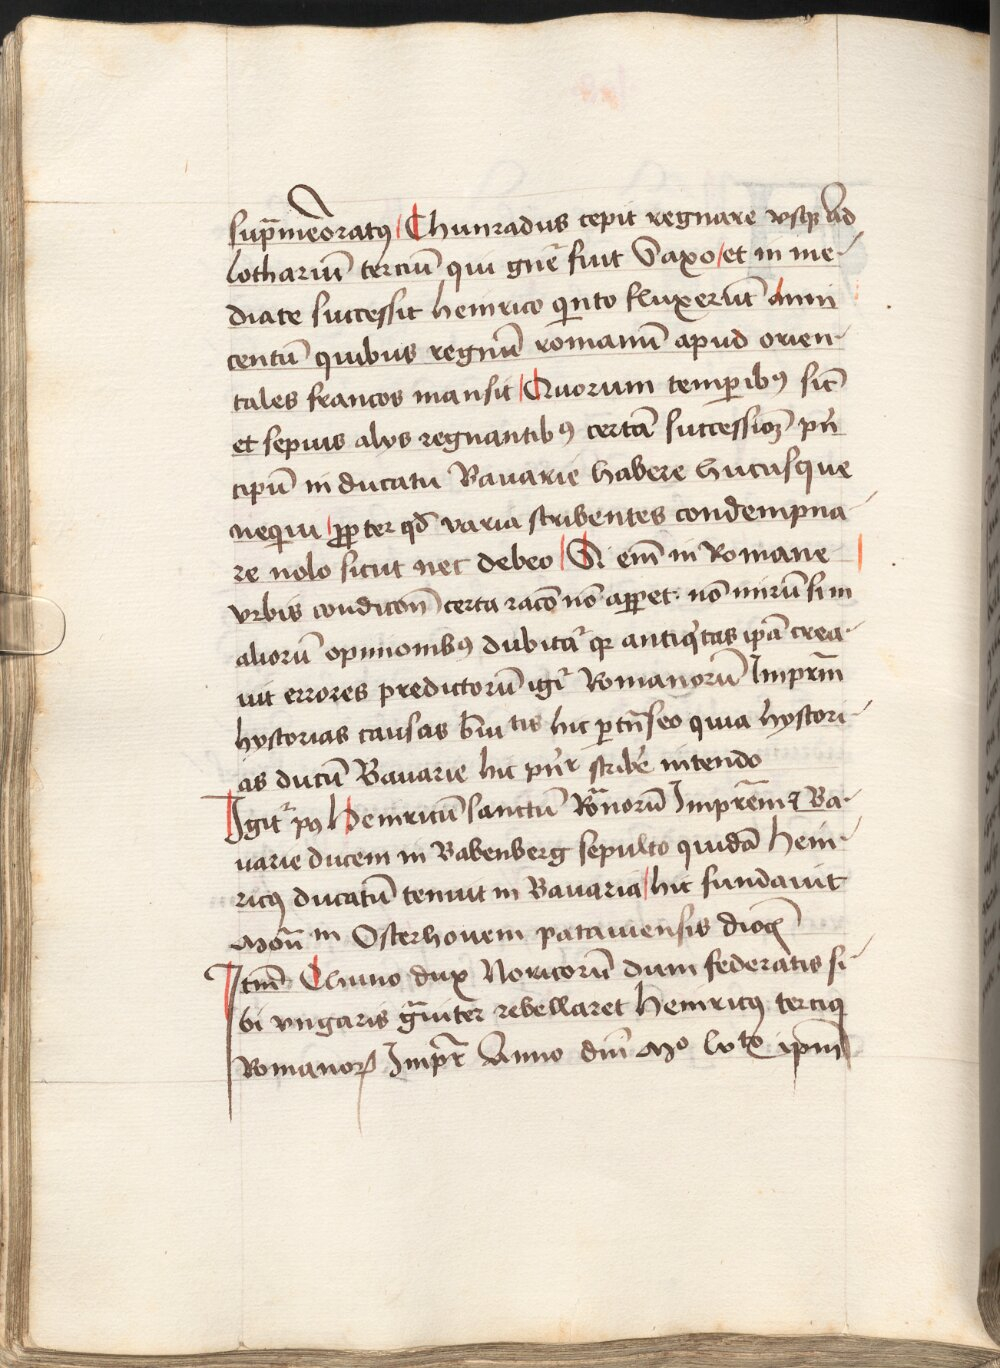 sup̄meōratꝰ Chunradus cepit regnare vsqꝫ ad
lothariū terciū qui gn̄e fuit Saxo / et in me-
diate successit heinrico qͥnto fluxerūt Anni
centū quibus regnū romanū apud orien-
tales francos mansit / Quorum temꝑibꝰ sic̄
et sepius alijs regnantibꝰ certā successioꝫ pͥn
cipū in ducatu Bauarie habere hucusque
nequi / ꝓpter qd̄ varia scribentes condempna-
re nolo sicut nec debeo / Si em̄ in Romane
vrbis condicōn certa racō nō apꝑet · nō mirū si in
aliorū opinionibꝰ dubitaͬ qꝛ antiqͥtas ip̄a crea-
uit errores predictorū igiͬ Romanorū Imꝑm̄
hystorias causas bͤuitis hic ꝑtn̄seo quia hystori-
as ducū Bauarie hic pn̄r scribe intendo
Igitͬ pꝰ Heinricū sanctū Ro̅norū Imprēm ⁊ Ba-
uarie ducem in Babenberg sepulto quidā hein-
ricꝰ ducatū tenuit in Bauaria / hic fundauit
Moñ in Osterhouem patauiensis dioc̄
Itm̄ Chuno dux Noricorū dum federatis si-
bi vngaris gͣuiter rebellaret Heinricꝰ terciꝰ
Romanoꝝ Impͬ Anno dn̄i Mo loto ipm̄